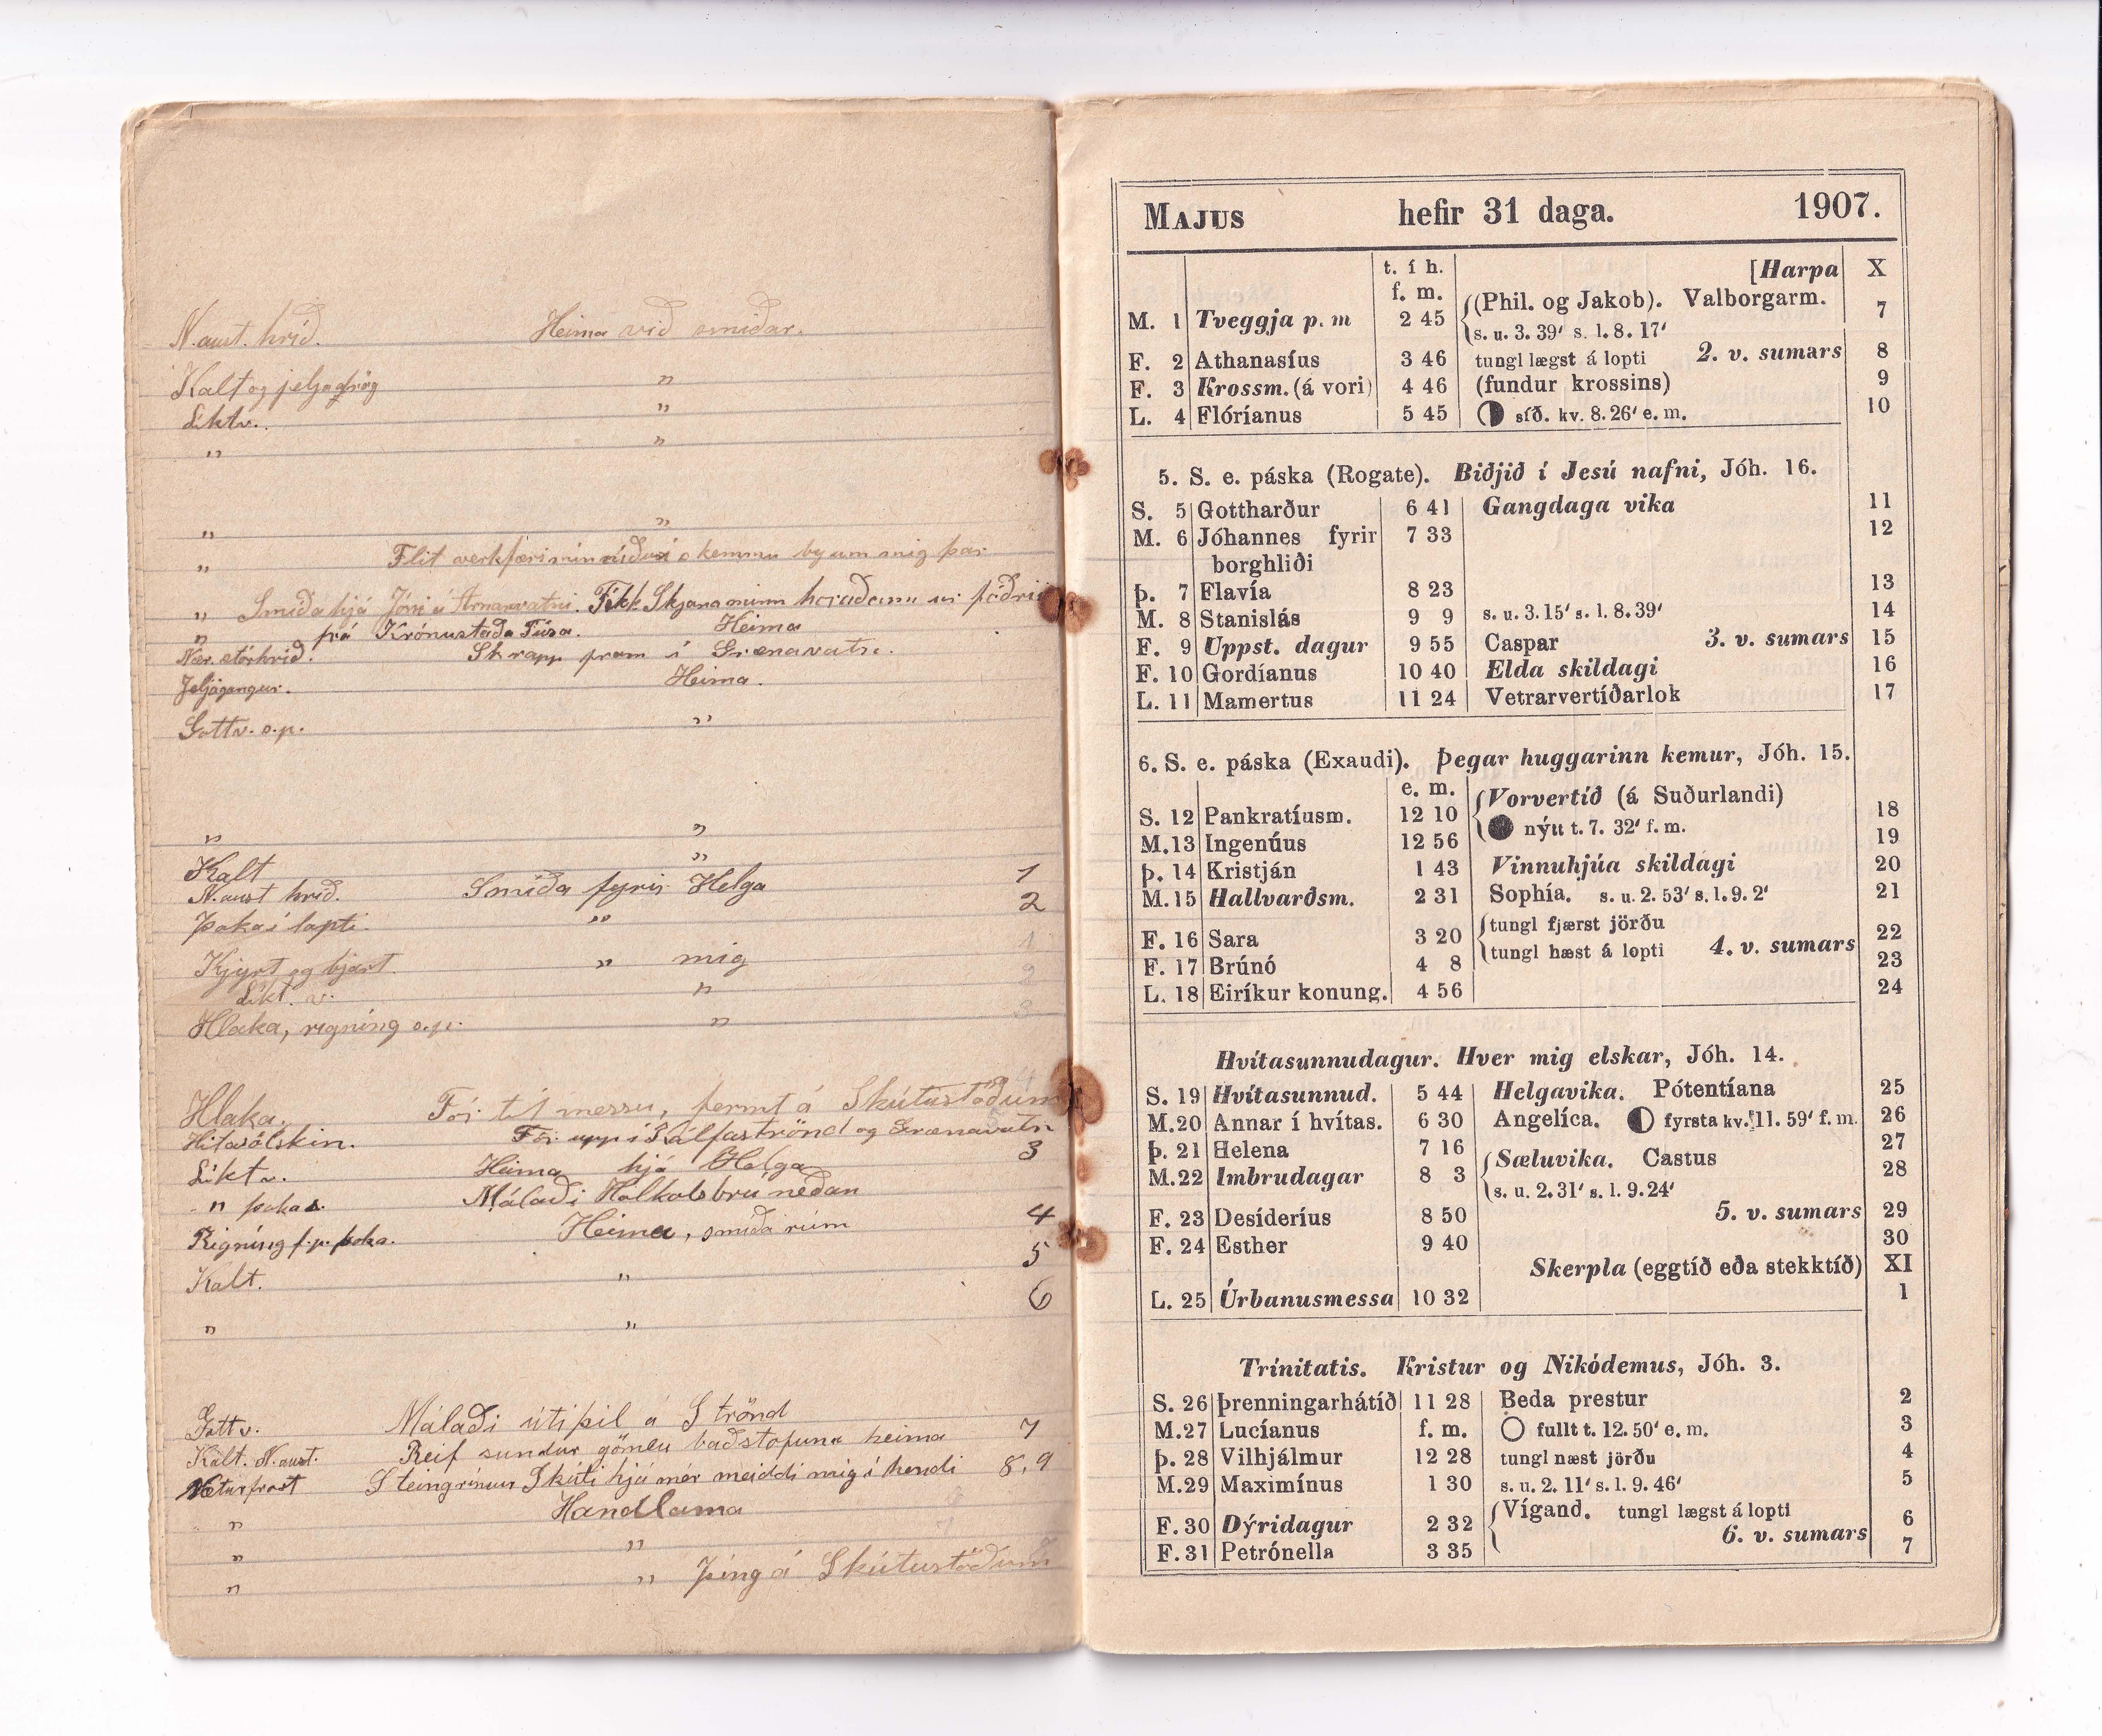 N.aust. hríð. Heima við smiðar.
Kalt og jeljadrög "
Líkt v. "
" "
" "
" Flit verkfæri mín
" Smíða hjá Jóni á Arnarvatni. Fékk Skjona minn
" frá Krónustaða Fúsa. Heima
Nær. stórhríð. Skrapp fram í Grænavatn.
Jeljagangur. Heima.
Gott v. o.p. "
" "
Kalt "
N.aust hríð. Smíða fyrir Helga 1
Þoka í lopti. " 2
Kjyrt og bjart. " mig 1
Líkt. v. " 2
Hlaka, rigning o.p. " 3
Hlaka. Fór til messu, fermt á Skútustöðum
Hita sólskin. Fór upp í Kálfaströnd og Grænavatn
Líkt v. Heima hjá Helga 3
" þoka s. Málaði Helkolsbrú neðan
Rigning f.p. þoka. Heima, smíða rúm 4
Kalt. " 5
" " 6
Gott v. Málaði útiþil á Strönd
Kalt. N.aust. Reif sundur gömlu baðstofuna heima 7
Næturfrost Steingrímur Skúti hjá mér meiddi mig í hendi 8,9
" Handlama
" "
" " Þing á Skútustöðum
MAJUS hefir 31 daga. 1907.
t. í h. [Harpa X
f. m.
M. 1 Tveggja p. m 2 45 (Phil. og Jakob). Valborgarm. 7
s. u. 3. 39' s. l. 8. 17'
F. 2 Athanasíus 3 46 tungl lægst á lopti 2. v. sumars 8
F. 3 Krossm. (á vori) 4 46 (fundur krossins) 9
L. 4 Flóríanus 5 45 síð. kv. 8. 26' e. m. 10
5. S. e. páska (Rogate). Biðjið í Jesú nafni, Jóh. 16.
S. 5 Gottharður 6 41 Gangdaga vika 11
M. 6 Jóhannes fyrir 7 33 12
borghliði
Þ. 7 Flavía 8 23 13
M. 8 Stanislás 9 9 s. u. 3. 15' s. l. 8. 39' 14
F. 9 Uppst. dagur 9 55 Caspar 3. v. sumars 15
F. 10 Gordíanus 10 40 Elda skildagi 16
L. 11 Mamertus 11 24 Vetrarvertíðarlok 17
6. S. e. páska (Exaudi). Þegar huggarinn kemur, Jóh. 15.
e. m.
S. 12 Pankratíusm. 12 10 Vorvertíð (á Suðurlandi) 18
nýtt t. 7. 32' f. m.
M. 13 Ingenúus 12 56 19
Þ. 14 Kristján 1 43 Vinnuhjúa skildagi 20
M. 15 Hallvarðsm. 2 31 Sophía. s. u. 2. 53' s. l. 9. 2' 21
F. 16 Sara 3 20 tungl fjærst jörðu 22
tungl hæst á lopti 4. v. sumars
F. 17 Brúnó 4 8 23
L. 18 Eiríkur konung. 4 56 24
Hvítasunnudagur. Hver mig elskar, Jóh. 14.
S. 19 Hvítasunnud. 5 44 Helgavika. Pótentíana 25
M. 20 Annar í hvítas. 6 30 Angelíca. fyrsta kv. 11. 59' f. m. 26
Þ. 21 Helena 7 16 27
Sæluvika. Castus
M. 22 Imbrudagar 8 3 s. u. 2. 31' s. l. 9. 24' 28
F. 23 Desíderíus 8 50 5. v. sumars 29
F. 24 Esther 9 40 30
Skerpla (eggtíð eða stekktíð) XI
L. 25 Úrbanusmessa 10 32 1
Trínitatis. Kristur og Nikódemus, Jóh. 3.
S. 26 Þrenningarhátíð 11 28 Beda prestur 2
M. 27 Lucíanus f. m. fullt t. 12. 50' e. m. 3
Þ. 28 Vilhjálmur 12 28 tungl næst jörðu 4
M. 29 Maximínus 1 30 s. u. 2. 11' s. l. 9. 46' 5
F. 30 Dýridagur 2 32 Vígand. tungl lægst á lopti 6
6. v. sumars
F. 31 Petrónella 3 35 7